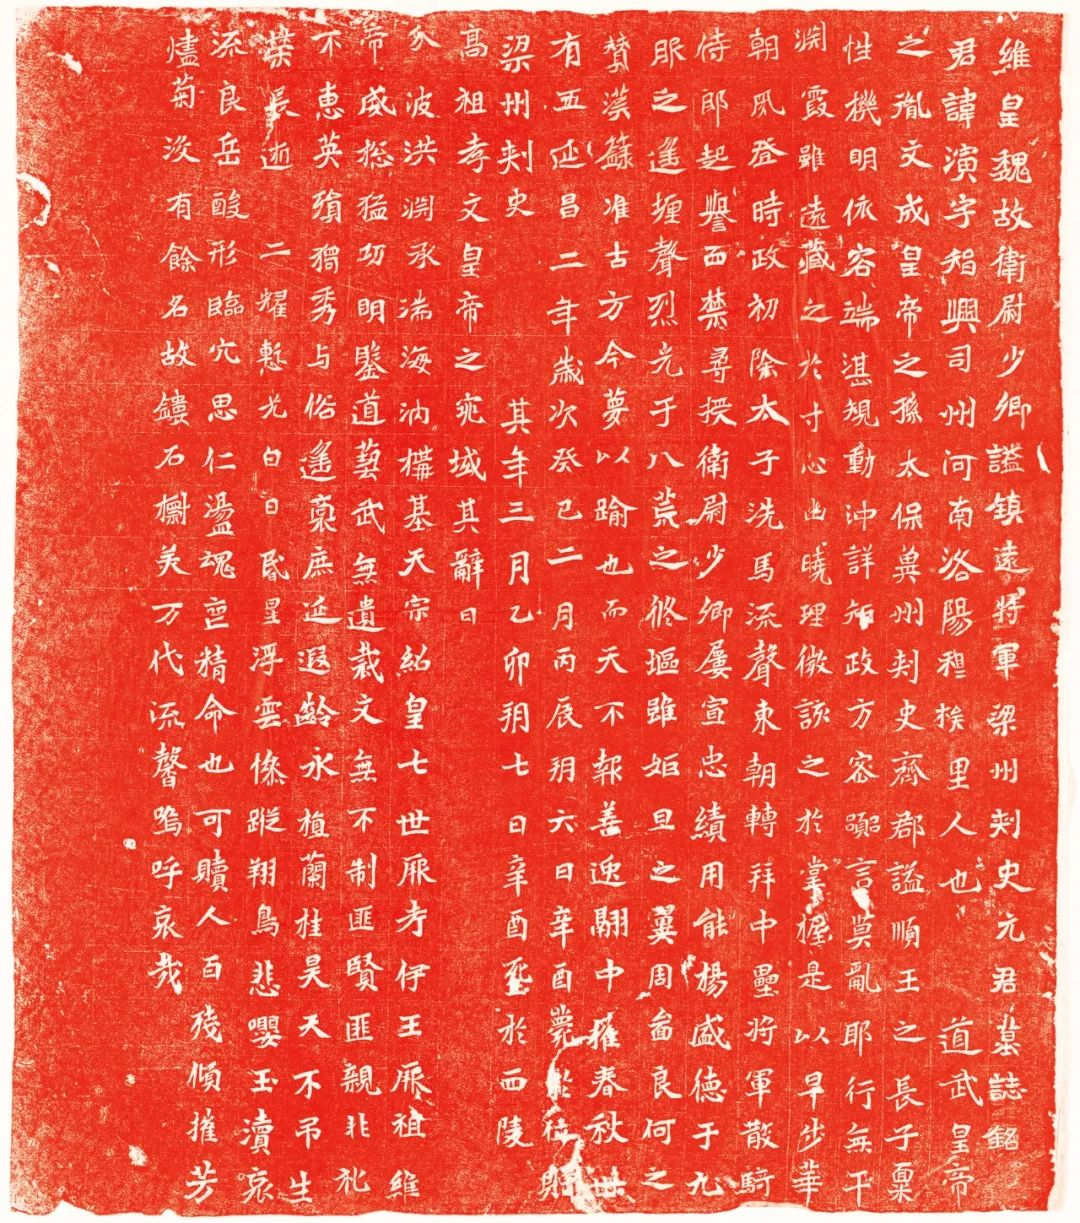 維皇魏故衛尉少卿謚鎮遠將軍梁州刾史元君墓誌銘
君諱演字智興司州河南洛陽穆族里人也 道武皇帝
之胤文成皇帝之孫太保冀州刾史齊郡謚順王之長子稟
性機明依容端湛規動沖詳知政方密弼言莫亂耶行無平
渊霞雖遠藏之於寸心幽曉理微該之於掌握是以早步華
朝夙登時政初除太子洗馬流聲東朝轉拜中壘將軍散騎
侍郎起譽西禁尋授衛尉少卿屢宣忠績用能楊盛德于九
服之遙堙聲烈光于八荒之修塸雖姬旦之翼周留良何之
賛漢籙准古方今蔑以踰也而天不報善迆翮中摧春秋卅
有五延昌二年歲次癸巳二月丙辰朔六日辛酉薨於位贈
梁州刾史 其年三月乙卯朔七日辛酉窆於西陵
高祖孝文皇帝之兆域其辭曰
分波洪渊承湍海汭構基天宗紹皇七世厥考伊王厥祖維
帝咸摠猛功明鑒道藝武無遺裁文無不制匪賢匪親非礼
不惠英殞獨秀与俗遙稟庶延遐齡永植蘭桂昊天不吊生
榮長逝 二耀慙光白日昏星浮雲慘蹤翔鳥悲嚶玉瀆哀
流良岳酸形臨穴思仁盪魂啻精命也可贖人百殘傾摧芳
燼菊沒有餘名故鏤石櫥美万代流馨嗚呼哀哉